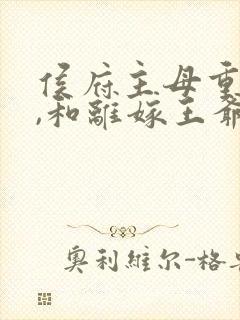 侯府主母重
,和離嫁王爺
奧利維尔-格